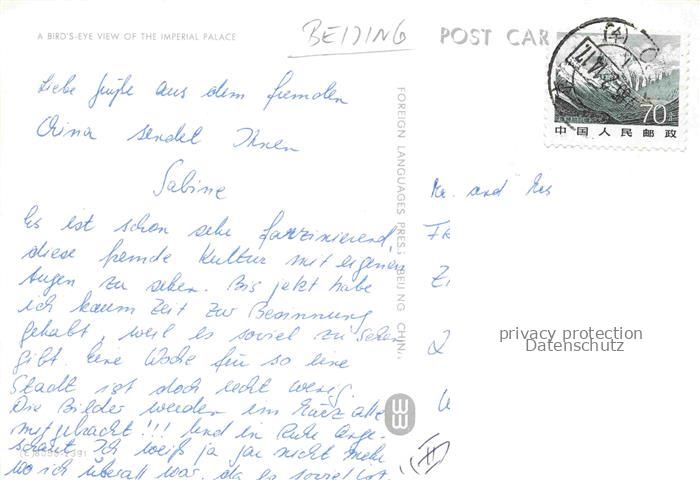 A BIRD'S-EYE VIEW OF THE IMPERIAL PALACE
BEIJING
POST CAR
70
中国人民邮政
Liebe Grüße aus dem fremden
China sendet Ihnen
Sabine
Es ist schon sehr faszinierend,
diese fremde Kultur mit eigenen
Augen zu sehen. Bis jetzt habe
ich kaum Zeit zur Besinnung
gehabt, weil es soviel zu sehen
gibt. Eine Woche für so eine
Stadt ist doch recht wenig.
Die Bilder werden im März alle
mitgebracht!!! Und in Ruhe ange-
schaut. Ich weiß ja gar nicht mehr
wo ich überall war, da es soviel ist.
(II)
FOREIGN LANGUAGES PRESS BEIJING CHINA
Mr. and Mrs
privacy protection
Datenschutz